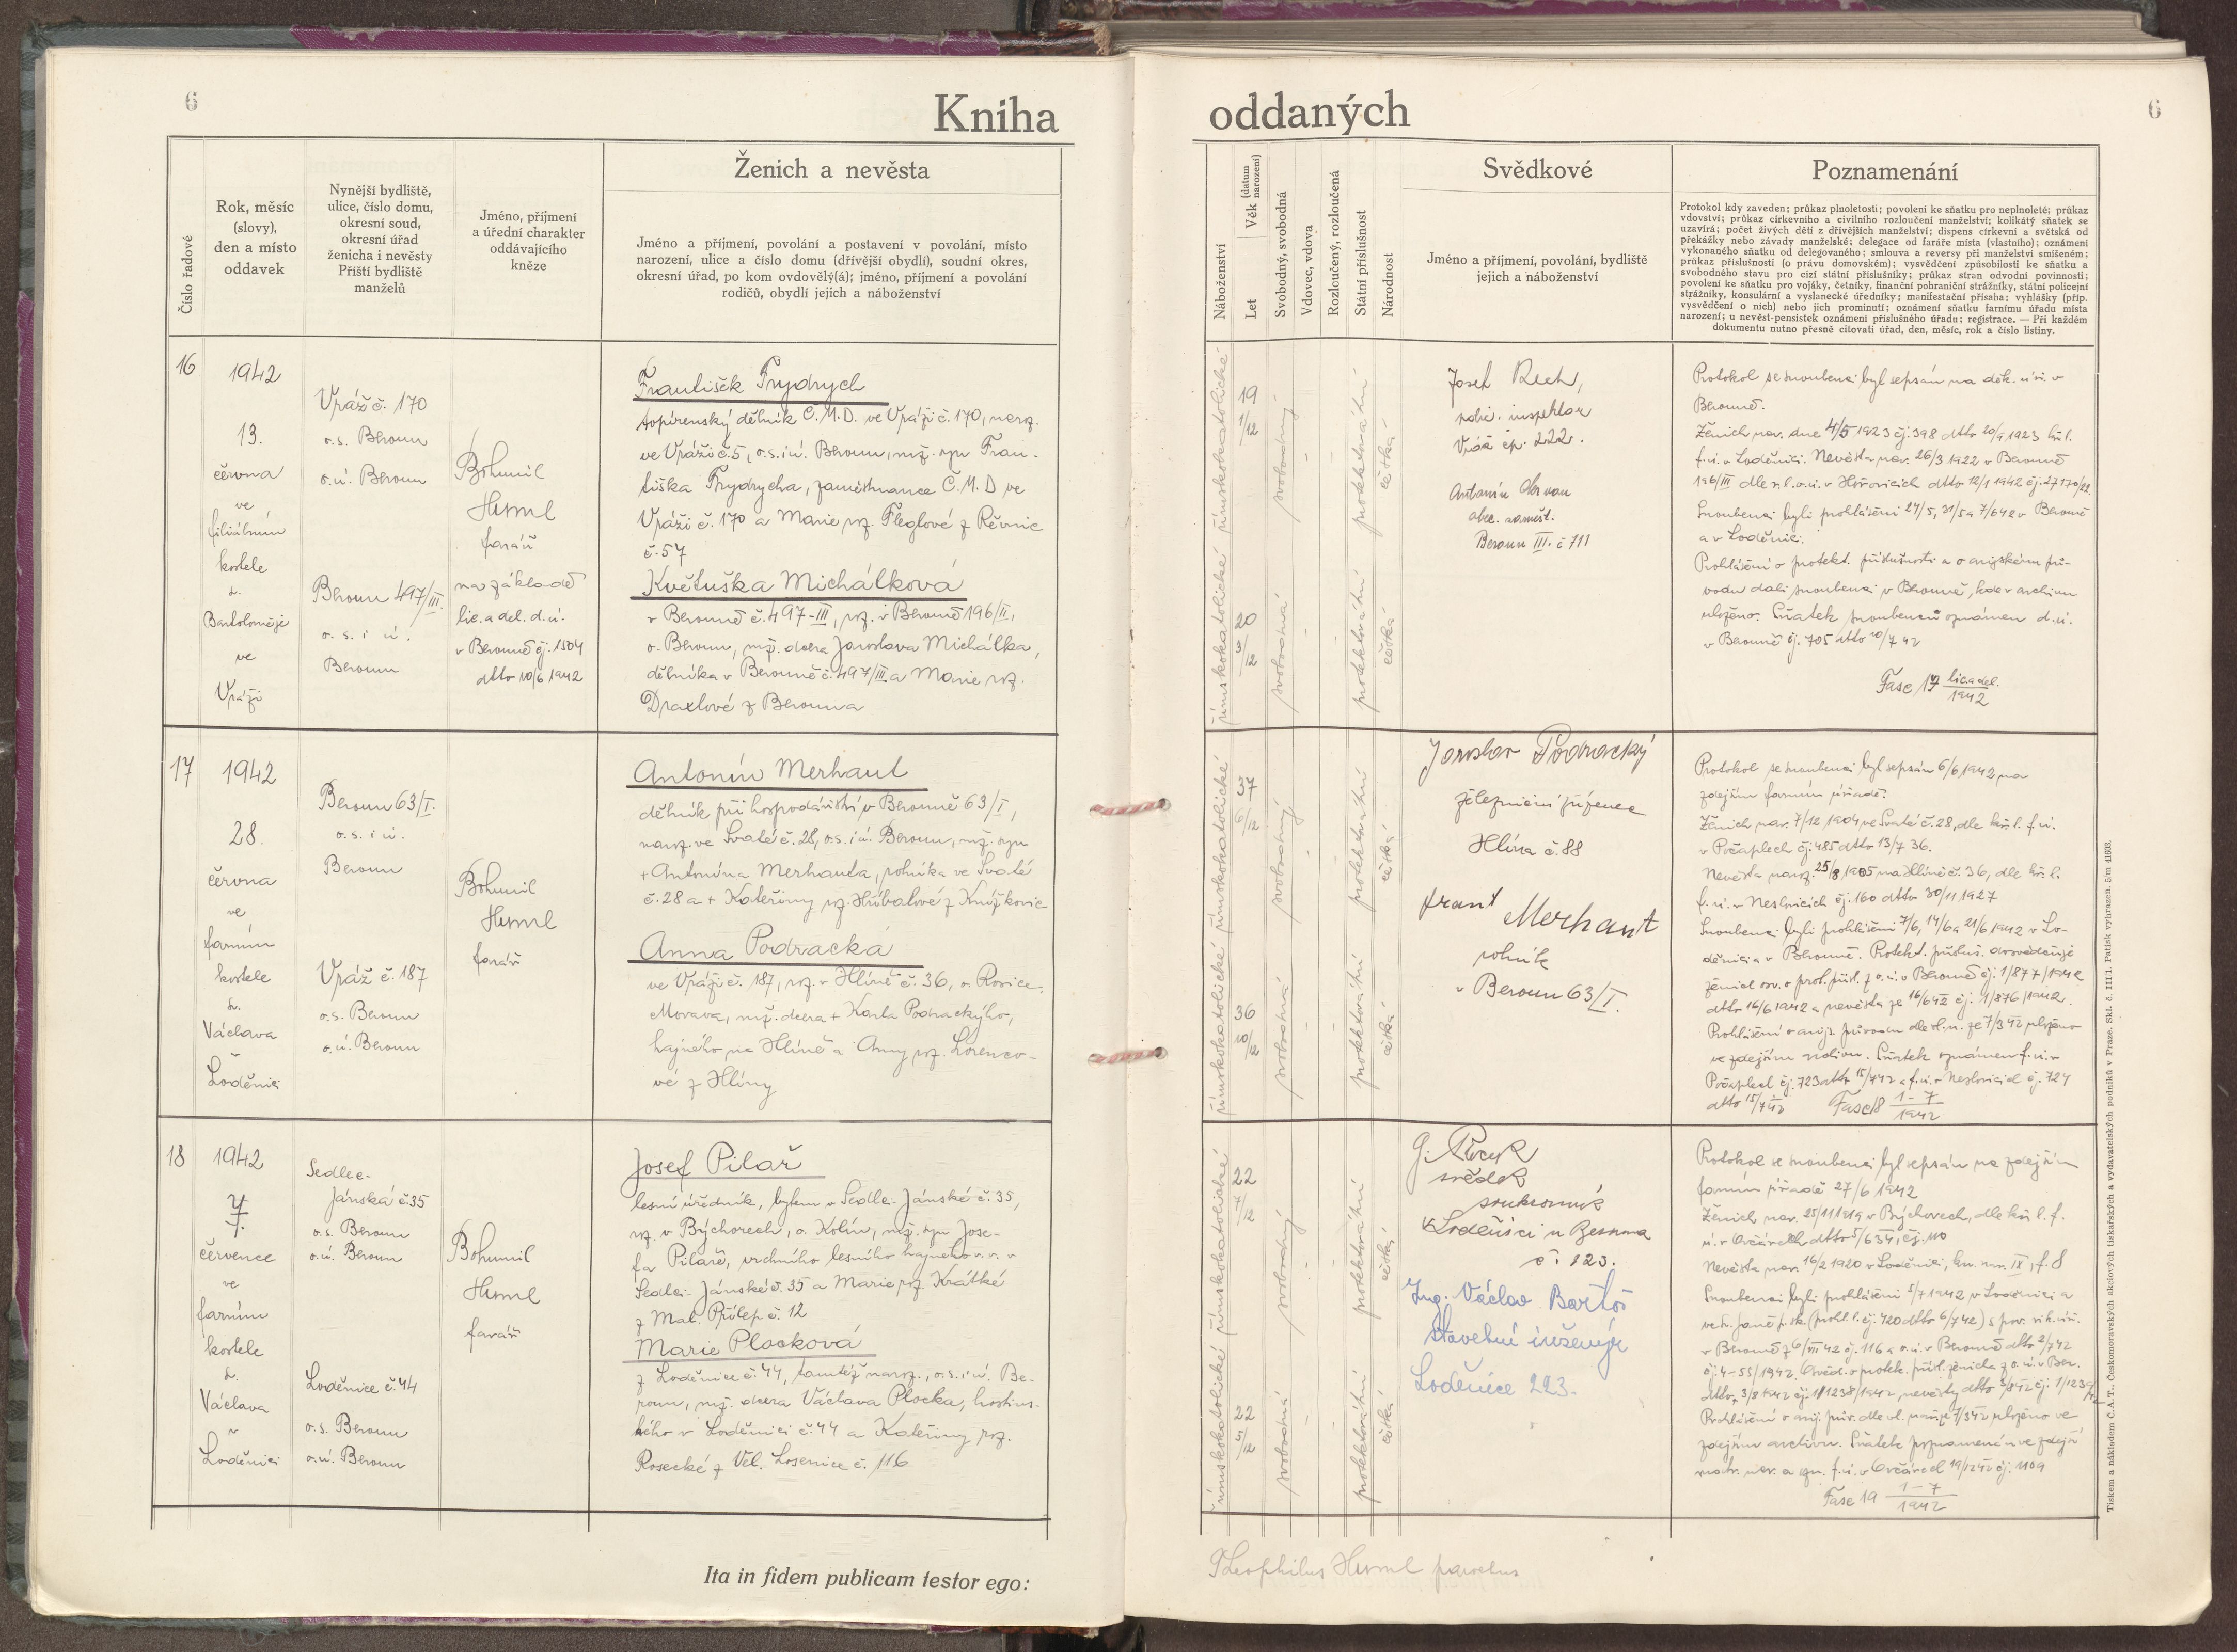 6
Kniha
Číslo řadové
Rok, měsíc
(slovy),
den a místo
oddavek
Nynější bydliště,
ulice, číslo domu,
okresní soud,
okresní úřad
ženicha i nevěsty
Příští bydliště
manželů
Jméno, příjmení
a úřední charakter
oddávajícího
kněze
Ženich a nevěsta
Jméno a příjmení, povolání a postavení v povolání, místo
narození, ulice a číslo domu (dřívější obydlí), soudní okres,
okresní úřad, po kom ovdovělý(á); jméno, příjmení a povolání
rodičů, obydlí jejich a náboženství
16
1942
13.
června
ve
filiálním
kostele
sv.
Bartoloměje
ve
Vráži
Vráž č. 170
o.s. Beroun
o.ú. Beroun
Beroun 497/III.
o. s. i ú.
Beroun
Bohumil
Huml
farář
na základě
lic. a del. d. ú.
v Berouně čj. 1504
dtto 10/6 1942
František Frydrych
topírenský dělník Č.M.D. ve Vráži č. 170, naroz.
ve Vráži č. 5, o.s. i ú. Beroun, mž. syn Fran-
tiška Frydrycha, zaměstnance Č.M.D ve
Vráži č. 170 a Marie roz. Fleglové z Řevnic
č. 57
Květuška Michálková
v Berouně č. 497-III, roz. v Berouně 196/II,
o. Beroun, mž. dcera Jaroslava Michálka,
dělníka v Berouně č. 497/III a Marie roz.
Draxlové z Berouna
17
1942
28.
června
ve
farním
kostele
sv.
Václava
v
Loděnici
Beroun 63/I.
o. s. i ú.
Beroun
Vráž č. 187
o.s. Beroun
o.ú. Beroun
Bohumil
Huml
farář
Antonín Merhaut
dělník při hospodářství v Berouně 63/I,
naroz. ve Svaté č. 28, o.s. i ú. Beroun, mž. syn
+ Antonína Merhauta, rolníka ve Svaté
č. 28 a + Kateřiny roz. Hříbalové z Kněžkovic
Anna Podracká
ve Vráži č. 187, roz. v Hlíně č. 36, o. Rosice
Morava, mž. dcera + Karla Podrackýho,
hajného na Hlíně a Anny roz. Lorenco-
vé z Hlíny
18
1942
7.
července
ve
farním
kostele
sv.
Václava
v
Loděnici
Sedlec-
Jánská č. 35
o.s. Beroun
o.ú. Beroun
Loděnice č. 44
o.s. Beroun
o.ú. Beroun
Bohumil
Huml
farář
Josef Pilař
lesní úředník, bytem v Sedlci-Jánské č. 35,
roz. v Býchorech, o. Kolín, mž. syn Jose-
fa Pilaře, vrchního lesního hajného v. v. v
Sedlci-Jánské č. 35 a Marie roz. Krátké
z Mal. Přílep č. 12
Marie Plocková
z Loděnice č. 44, tamtéž naroz., o.s. i ú. Be-
roun, mž. dcera Václava Plocka, hostins-
kého v Loděnici č. 44 a Kateřiny roz.
Rosecké z Vel. Losenice č. 116
Ita in fidem publicam testor ego:
6
oddaných
Náboženství
Let
Věk (datum narození)
Svobodný, svobodná
Vdovec, vdova
Rozloučený, rozloučená
Státní příslušnost
Národnost
Svědkové
Jméno a příjmení, povolání, bydliště
jejich a náboženství
Poznamenání
Protokol kdy zaveden; průkaz plnoletosti; povolení ke sňatku pro neplnoleté; průkaz
vdovství; průkaz církevního a civilního rozloučení manželství; kolikátý sňatek se
uzavírá; počet živých dětí z dřívějších manželství; dispens církevní a světská od
překážky nebo závady manželské; delegace od faráře místa (vlastního); oznámení
vykonaného sňatku od delegovaného; smlouva a reversy při manželství smíšeném;
průkaz příslušnosti (o právu domovském); vysvědčení způsobilosti ke sňatku a
svobodného stavu pro cizí státní příslušníky; průkaz stran odvodní povinnosti;
povolení ke sňatku pro vojáky, četníky, finanční pohraniční strážníky, státní policejní
strážníky, konsulární a vyslanecké úředníky; manifestační přísaha; vyhlášky (příp.
vysvědčení o nich) nebo jich prominutí; oznámení sňatku farnímu úřadu místa
narození; u nevěst-pensistek oznámení příslušného úřadu; registrace. — Při každém
dokumentu nutno přesně citovati úřad, den, měsíc, rok a číslo listiny.
římskokatolické
19
1/12
svobodný
-
-
protektorátní
česká
římskokatolické
20
3/12
svobodná
-
-
protektorátní
česká
Josef
polic. inspektor
Vráž čp. 222.
Antonín
obec. zaměst.
Beroun III. č 711
Protokol se snoubenci byl sepsán na děk. úř. v
Berouně.
Ženich nar. dne 4/5 1923 čj. 398 dtto 20/9 1923 kř. l.
f. ú. v Loděnici. Nevěsta nar. 26/3 1922 v Berouně
196/III dle r. l. o. ú. v Hořovicích dtto 12/1 1942 čj. 27170/22.
Snoubenci byli prohlášeni 24/5, 31/5 a 7/6 42 v Berouně
a v Loděnici.
Prohlášení o protekt. příslušnosti a o arijském pů-
vodu dali snoubenci v Berouně, kde v archivu
uloženo. Sňatek snoubenců oznámen d. ú.
v Berouně čj. 705 dtto 10/7 42
Fasc 17 lic. a del. 1942
římskokatolické
37
6/12
svobodný
-
-
protektorátní
česká
římskokatolické
36
10/12
svobodná
-
-
protektorátní
česká
Jaroslav Podracký
železniční zřízenec
Hlína č. 88
Frant Merhaut
rolník
v Beroun 63/I.
Protokol se snoubenci byl sepsán 6/6 1942 na
zdejším farním úřadě.
Ženich nar. 7/12 1904 ve Svaté č. 28, dle kř. l. f. ú.
v Počaplech čj. 485 dtto 13/7 36.
Nevěsta naroz. 25/8 1905 na Hlíně č. 36, dle kř. l.
f. ú. v Neslovicích čj. 160 dtto 30/11 1927
Snoubenci byli prohlášeni 7/6, 14/6 a 21/6 1942 v Lo-
děnici a v Berouně. Protekt. příslus. dosvědčuje
ženich osv. o prot. přísl. z o. ú. v Berouně čj. 1/877/1942
dtto 16/6 1942 a nevěsta ze 16/6 42 čj. 1/876/1942.
Prohlášení o arijs. původu dle vl. n. ze 7/3 42 uloženo
ve zdejším archivu. Sňatek oznámen f. ú. v
Počaplech čj. 723 dtto 15/7 42 a f. ú. v Neslovicích čj. 724
dtto 15/7 42 Fasc 18 1-7 1942
římskokatolické
22
7/12
svobodný
-
-
protektorátní
česká
římskokatolické
22
5/12
svobodná
-
-
protektorátní
česká
svědek
soukromník
Loděnici u Berouna
č. 123.
Ing. Václav Bartoš
stavební inženýr
Loděnice 223.
Protokol se snoubenci byl sepsán na zdejším
farním úřadě 27/6 1942
Ženich nar. 25/11 1919 v Býchorech, dle kř. l. f.
ú. v Ovčárech dtto 5/6 34, čj. 110
Nevěsta nar. 16/2 1920 v Loděnici, kn. nar. IX, f. 8
Snoubenci byli prohlášeni 5/7 1942 v Loděnici a
ve sv. Janě p. sk. (prohl. l. čj. 420 dtto 6/7 42) s pov. vik. úř.
v Berouně z 6/VII 42 čj. 116 a o. ú. v Berouně dtto 2/7 42
čj. 4-55/1942. Osvěd. o protek. přísl. ženicha z o. ú. v Ber.
dtto 3/8 1942 čj. 1/1238/1942, nevěsty dtto 3/8 42 čj. 1/1239/42
Prohlášení o arij. pův. dle vl. nař. ze 7/3 42 uloženo ve
zdejším archivu. Sňatek poznamenán ve zdejší
matr. nar. a ozn. f. ú. v Ovčárech 19/12 42 čj. 1109
Fasc 19 1-7 1942
Theophilus Huml parochus
Tiskem a nákladem Č.A.T., Českomoravských akciových tiskařských a vydavatelských podniků v Praze. Skl. č. III 1. Patisk vyhrazen. 5/m 41603.